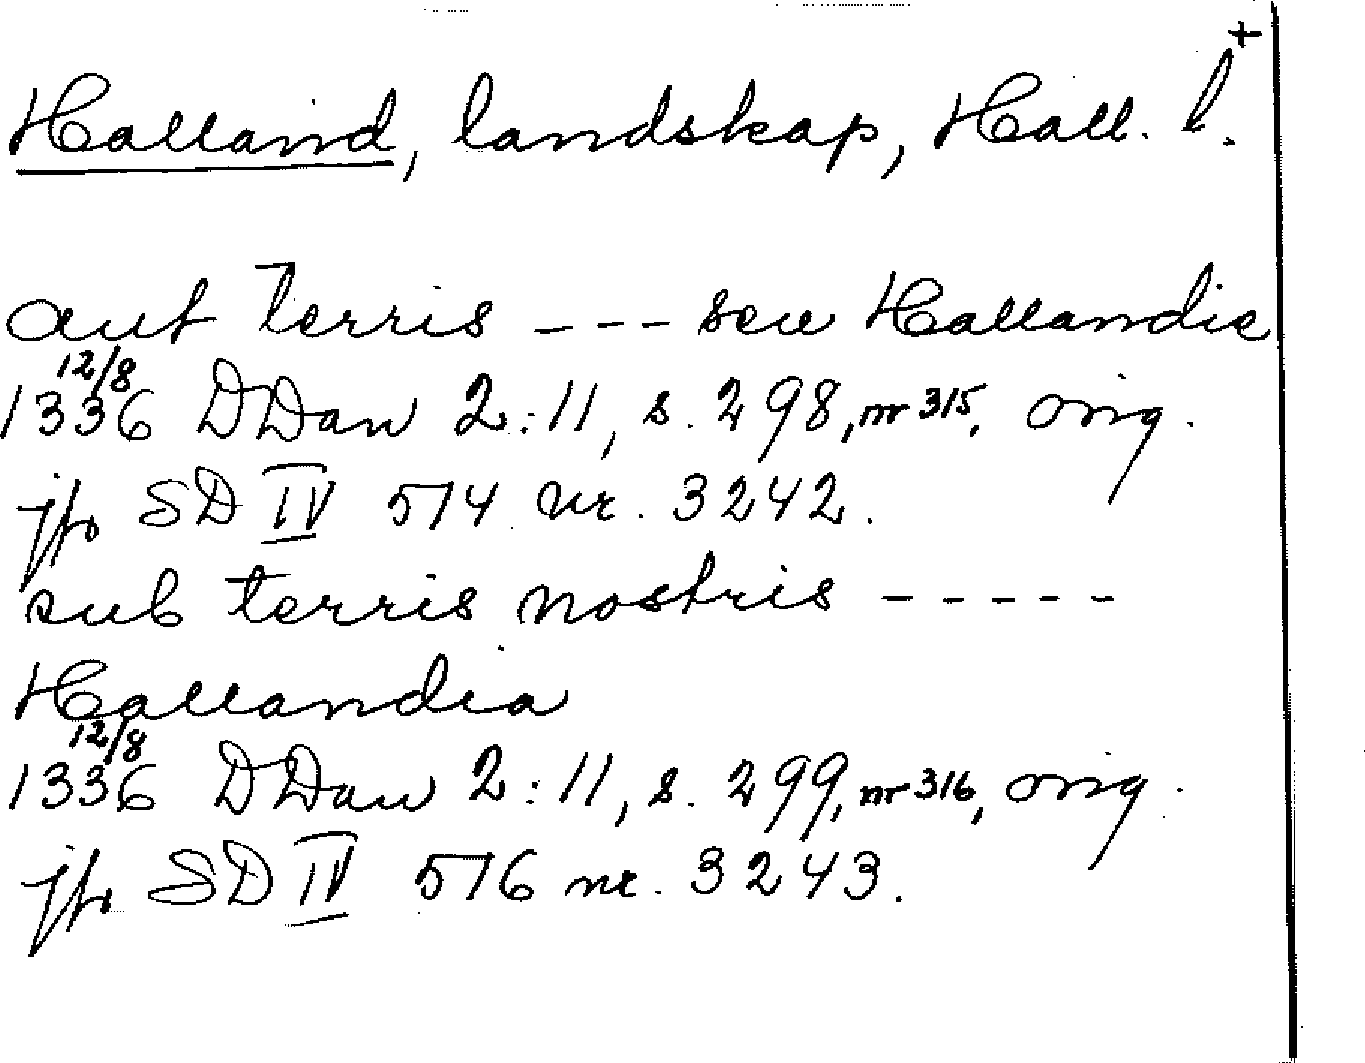 Halland, landskap, Hall. l. +
aut terris --- seu Hallandie
1336 12/8 DDan 2:11, s. 298, nr 315, orig.
jfr SD IV 574 nr. 3242.
sub terris nostris -----
Hallandia
1336 12/8 DDan 2:11, s. 299, nr 316, orig.
jfr SD IV 576 nr. 3243.